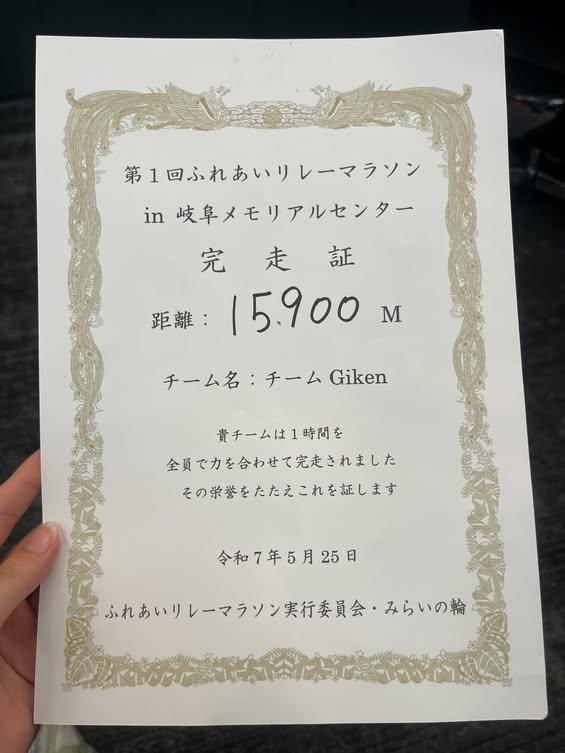 第1回ふれあいリレーマラソン
in 岐阜メモリアルセンター
完走証
距離：15.900 M
チーム名：チーム Giken
貴チームは1時間を
全員で力を合わせて完走されました
その栄誉をたたえこれを証します
令和7年5月25日
ふれあいリレーマラソン実行委員会・みらいの輪